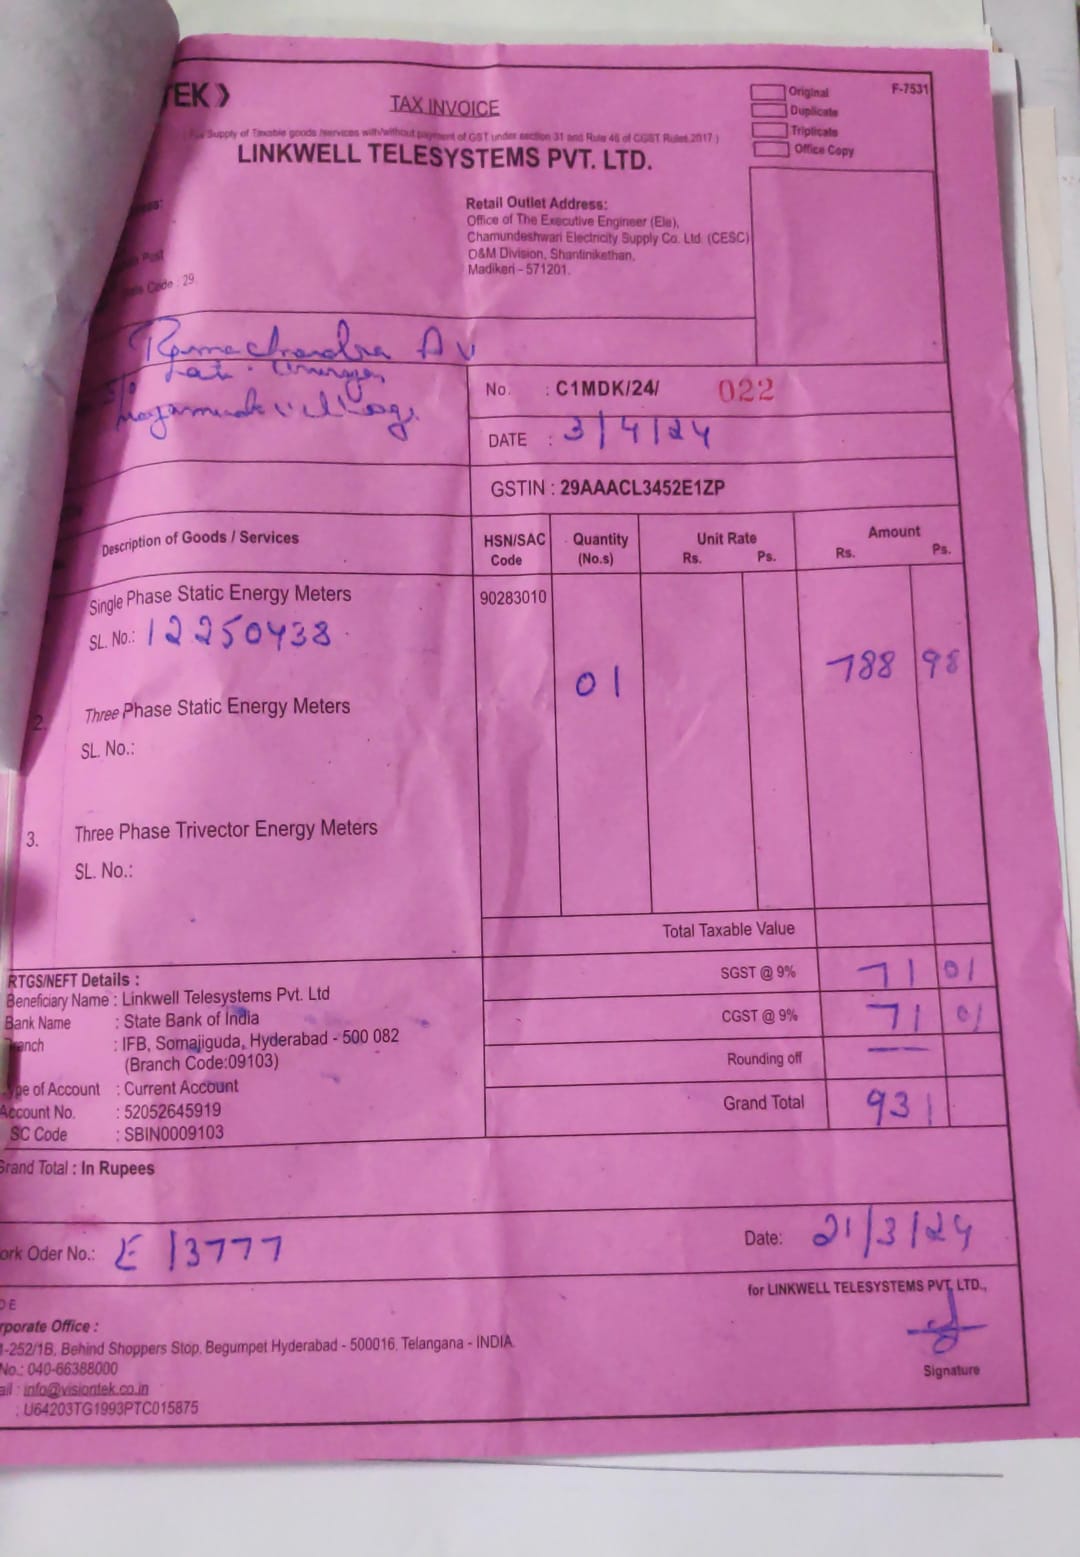 TEK
TAX INVOICE
Original
Duplicate
Triplicate
Office Copy
F-7531
( For Supply of Taxable goods /services with/without payment of GST under section 31 and Rule 46 of CGST Rules 2017 )
LINKWELL TELESYSTEMS PVT. LTD.
Retail Outlet Address:
Office of The Executive Engineer (Ele),
Chamundeshwari Electricity Supply Co. Ltd. (CESC)
O&M Division, Shantinikethan,
Madikeri - 571201.
Post
Code : 29
Ramachandra A V
S/o Late
No. : C1MDK/24/ 022
DATE : 3/4/24
GSTIN : 29AAACL3452E1ZP
Description of Goods / Services HSN/SAC Code Quantity (No.s) Unit Rate Rs. Ps. Amount Rs. Ps.
Single Phase Static Energy Meters 90283010
SL. No.: 12250438 01 788 98
2. Three Phase Static Energy Meters
SL. No.:
3. Three Phase Trivector Energy Meters
SL. No.:
Total Taxable Value
SGST @ 9% 71 01
CGST @ 9% 71 01
Rounding off —
Grand Total 931
RTGS/NEFT Details :
Beneficiary Name : Linkwell Telesystems Pvt. Ltd
Bank Name : State Bank of India
anch : IFB, Somajiguda, Hyderabad - 500 082
(Branch Code:09103)
ype of Account : Current Account
Account No. : 52052645919
SC Code : SBIN0009103
Grand Total : In Rupees
ork Oder No.: E 13777 Date: 21/3/24
for LINKWELL TELESYSTEMS PVT, LTD.,
rporate Office :
1-252/1B, Behind Shoppers Stop, Begumpet Hyderabad - 500016. Telangana - INDIA.
No.: 040-66388000
ail : info@visiontek.co.in
: U64203TG1993PTC015875
Signature